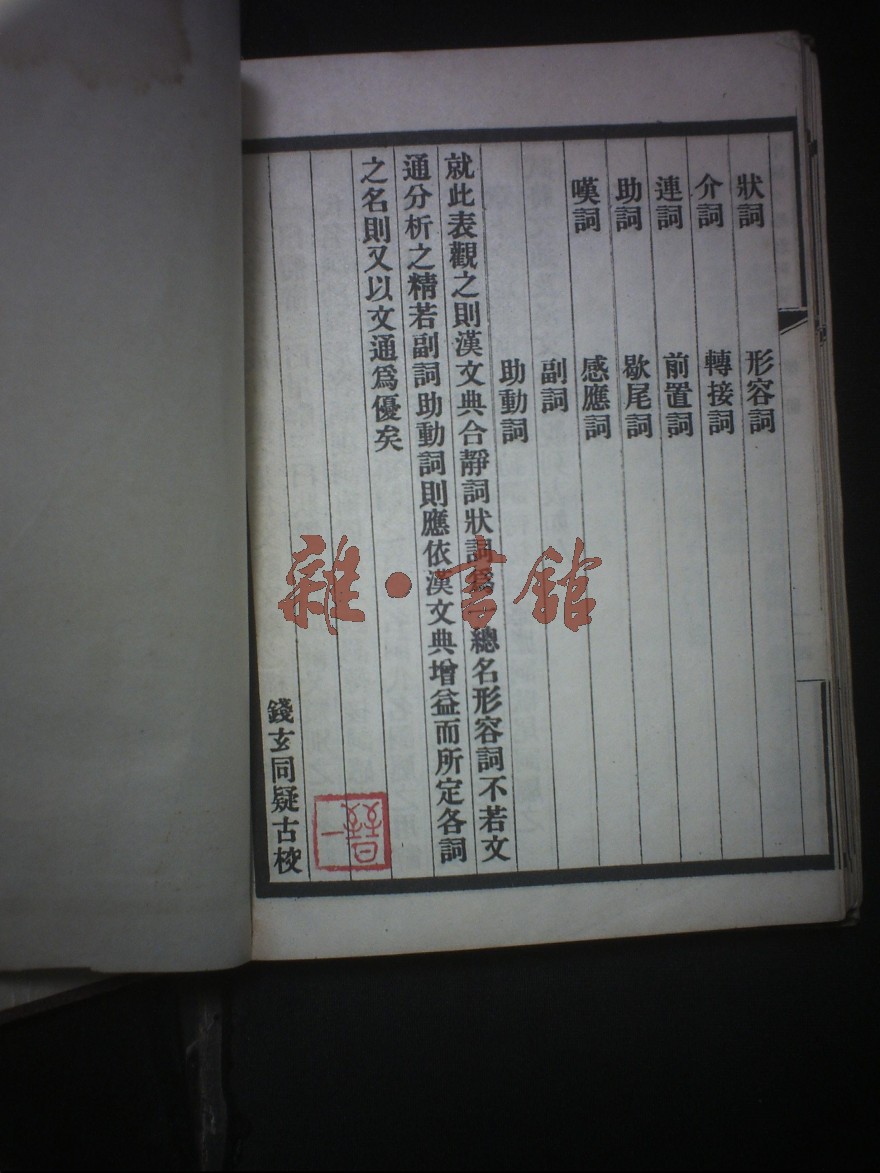 狀詞 形容詞
介詞 轉接詞
連詞 前置詞
助詞 歇尾詞
嘆詞 感應詞
副詞
助動詞
就此表觀之則漢文典合靜詞狀詞爲一總名形容詞不若文
通分析之精若副詞助動詞則應依漢文典增益而所定各詞
之名則又以文通爲優矣
錢玄同疑古校
雜·書館